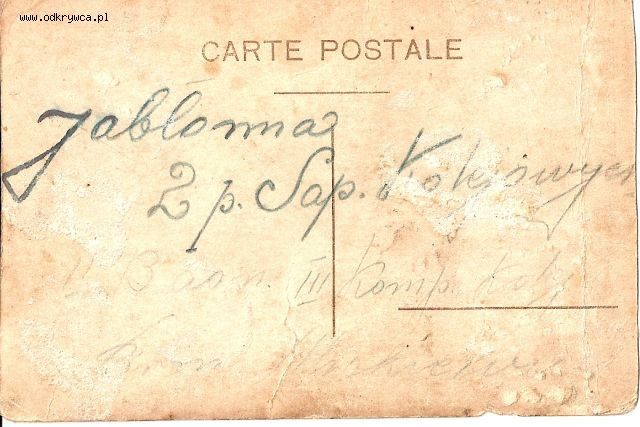 www.odkrywca.pl
CARTE POSTALE
Jabłonna
2 p. Sap. Kolejowych
II Baon. III Komp. Kolej